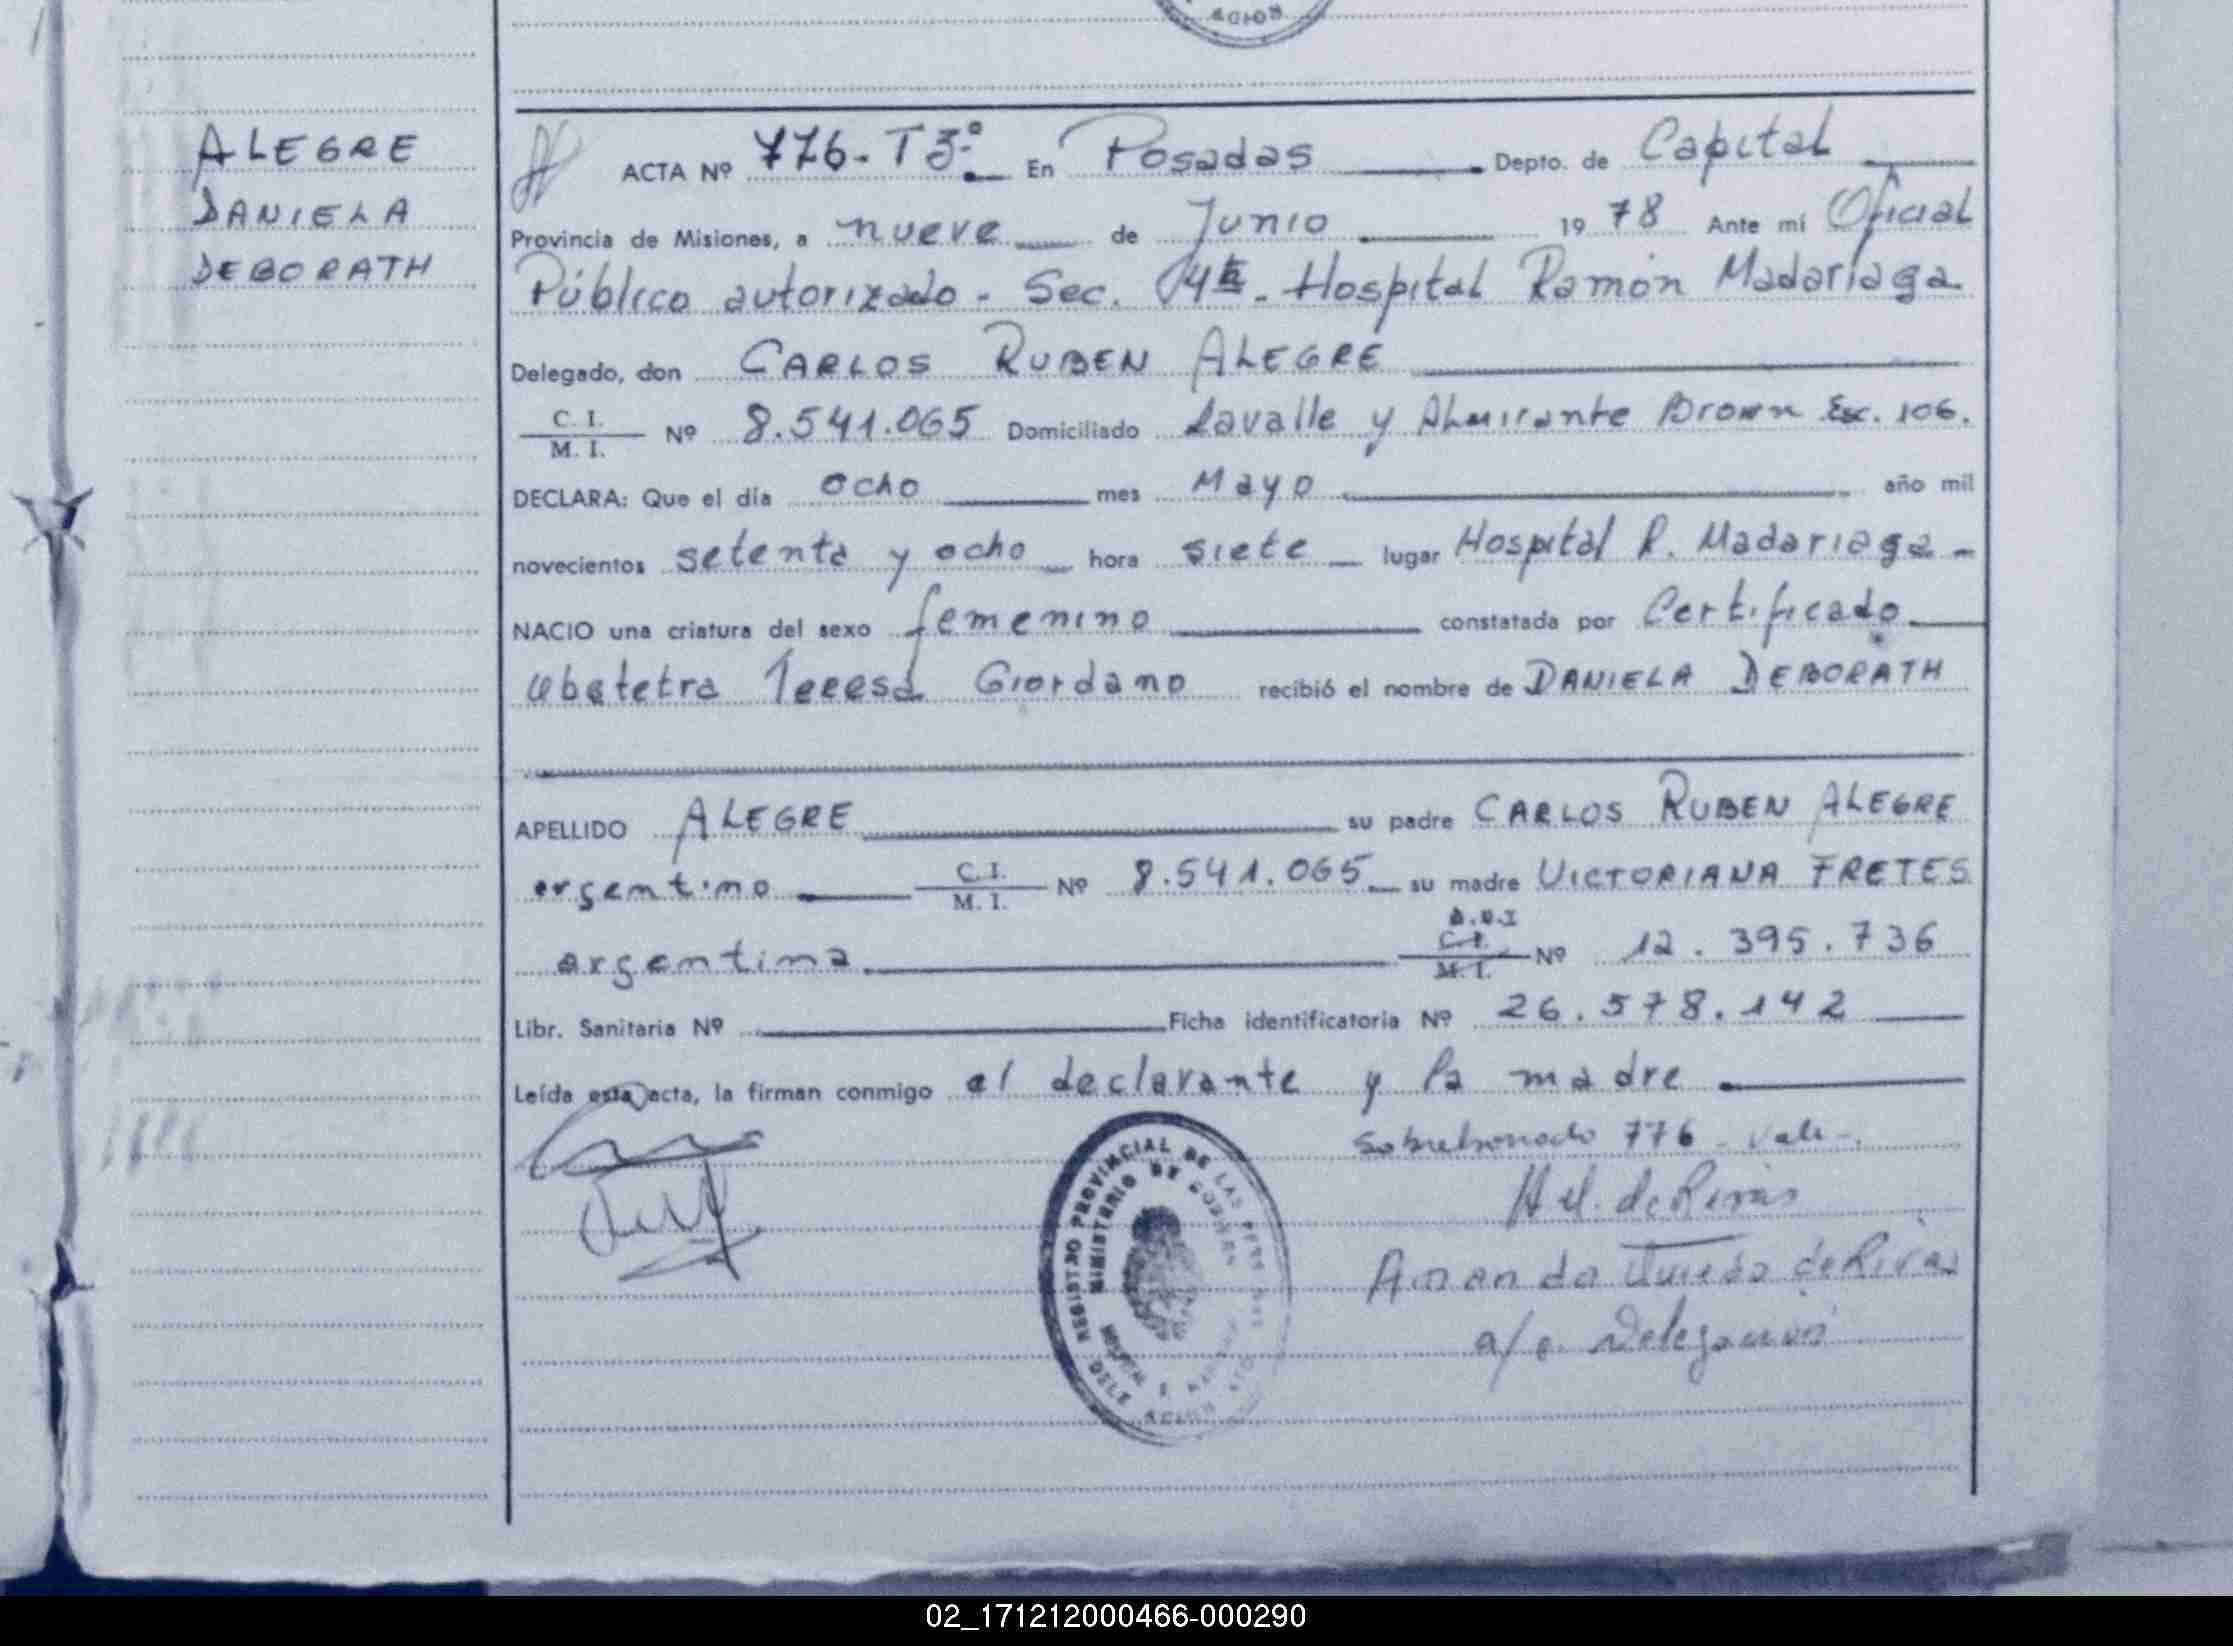 ACION
ALEGRE
DANIELA
DEBORATH
ACTA Nº 776-T3º En Posadas Depto. de Capital
Provincia de Misiones, a nueve de Junio 19 78 Ante mí Oficial
Público autorizado - Sec. 4ta - Hospital Ramón Madariaga
Delegado, don CARLOS RUBEN ALEGRE
C. I.
M. I. Nº 8.541.065 Domiciliado Lavalle y Almirante Brown Esc. 106.
DECLARA: Que el día ocho mes Mayo año mil
novecientos setenta y ocho hora siete lugar Hospital R. Madariaga -
NACIO una criatura del sexo femenino constatada por Certificado
Obstetra Teresa Giordano recibió el nombre de DANIELA DEBORATH
APELLIDO ALEGRE su padre CARLOS RUBEN ALEGRE
argentino C. I. M. I. Nº 8.541.065 su madre VICTORIANA FRETES
argentina D.N.I C. I. M. I. Nº 12.395.736
Libr. Sanitaria Nº Ficha identificatoria Nº 26.578.142
Leída esta acta, la firman conmigo el declarante y la madre
Sobreborrado 776 - vale -.
REGISTRO PROVINCIAL DE LAS PERSONAS
MINISTERIO DE GOBIERNO
de Rivas
de Rivas
a/c Delegación
02_171212000466-000290